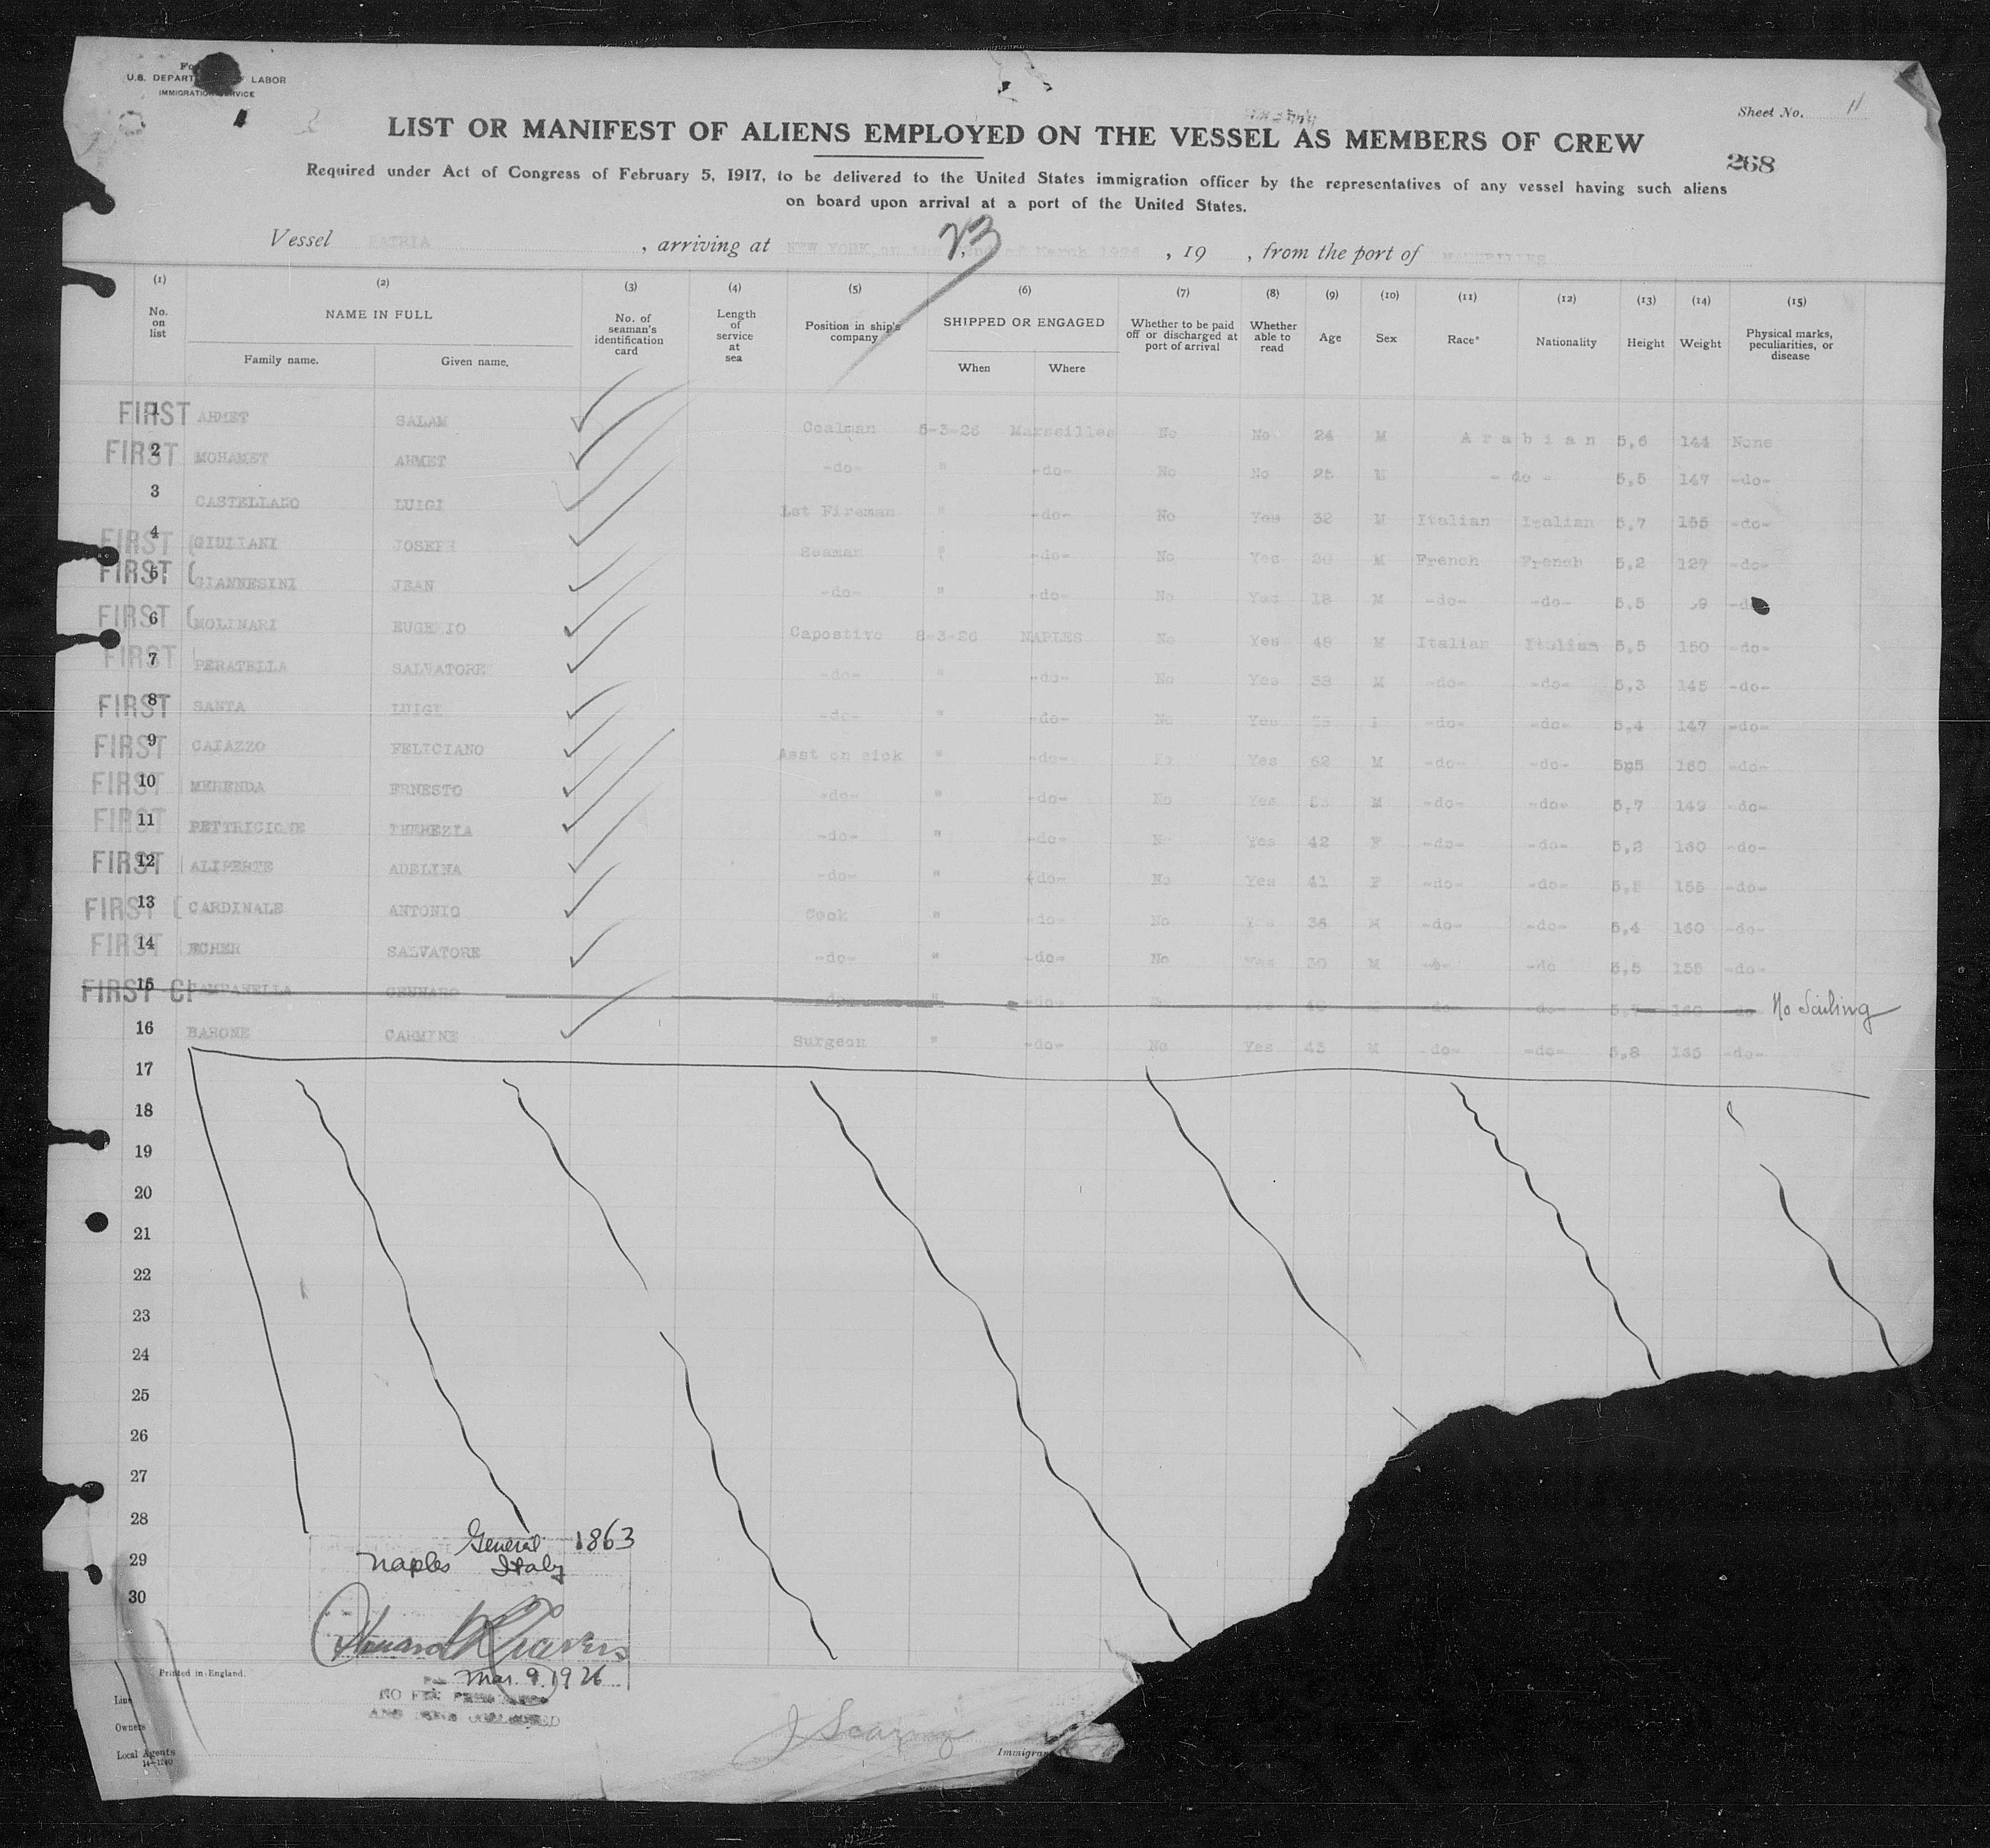 U.S. DEPART LABOR
IMMIGRATION SERVICE
Sheet No. 11
LIST OR MANIFEST OF ALIENS EMPLOYED ON THE VESSEL AS MEMBERS OF CREW
268
Required under Act of Congress of February 5, 1917, to be delivered to the United States immigration officer by the representatives of any vessel having such aliens
on board upon arrival at a port of the United States.
Vessel PATRIA , arriving at NEW YORK, on the 23 of March 1926 , 19 , from the port of MARSEILLES
(1) No. on list
(2) NAME IN FULL Family name. Given name.
(3) No. of seaman's identification card
(4) Length of service at sea
(5) Position in ship's company
(6) SHIPPED OR ENGAGED When Where
(7) Whether to be paid off or discharged at port of arrival
(8) Whether able to read
(9) Age
(10) Sex
(11) Race*
(12) Nationality
(13) Height
(14) Weight
(15) Physical marks, peculiarities, or disease
FIRST 1 AHMET SALAM Coalman 5-3-26 Marseilles No No 24 M Arabian 5,6 144 None
FIRST 2 MOHAMET AHMET -do- " -do- No No 25 M - do - 5,5 147 -do-
3 CASTELLANO LUIGI 1st Fireman " -do- No Yes 32 M Italian Italian 5,7 155 -do-
FIRST 4 GIULIANI JOSEPH Seaman -do- No Yes M French French 5,2 127 -do-
FIRST 5 GIANNESINI JEAN -do- " -do- No Yes 18 M -do- -do- 5,5 -do-
FIRST 6 MOLINARI EUGENIO Capostivo 8-3-26 NAPLES No Yes 48 M Italian Italian 5,5 150 -do-
FIRST 7 PERATELLA SALVATORE -do- " -do- No Yes 38 M -do- -do- 5,3 145 -do-
FIRST 8 SANTA LUIGI -do- " -do- No Yes -do- -do- 5,4 147 -do-
FIRST 9 CAIAZZO FELICIANO Asst on sick " -do- No Yes 62 M -do- -do- 5,5 160 -do-
FIRST 10 MERENDA ERNESTO -do- " -do- No Yes M -do- -do- 5,7 149 -do-
FIRST 11 PETTRICIONE THEREZIA -do- " -do- No Yes 42 F -do- -do- 5,2 160 -do-
FIRST 12 ALIPERTE ADELINA -do- " -do- No Yes 41 F -do- -do- 155 -do-
FIRST 13 CARDINALE ANTONIO Cook " -do- No Yes 36 M -do- -do- 5,4 160 -do-
FIRST 14 SALVATORE -do- " -do- No Yes 30 M -do- -do 5,5 155 -do-
FIRST 15 CAMPANELLA GENNARO " -do- -do- -do- No Sailing
16 BARONE CARMINE Surgeon " -do- No Yes 43 M -do- -do- 5,8 -do-
17
18
19
20
21
22
23
24
25
26
27
28
29
30
General 1863
Naples Italy
Mar. 9, 1926
NO FEE
Printed in England.
Line
Owners
Local Agents
14-1240
Immigran